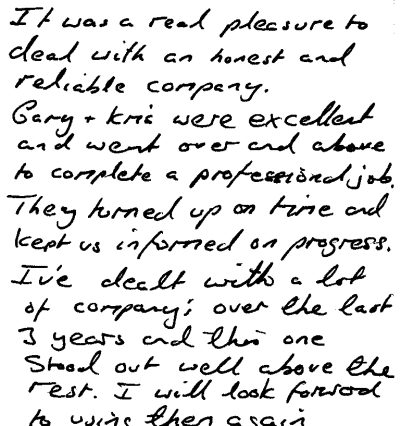 It was a real pleasure to
deal with an honest and
reliable company.
Gary + Kris were excellent
and went over and above
to complete a professional job.
They turned up on time and
kept us informed on progress.
I've dealt with a lot
of company's over the last
3 years and this one
Stood out well above the
rest. I will look forward
to using them again